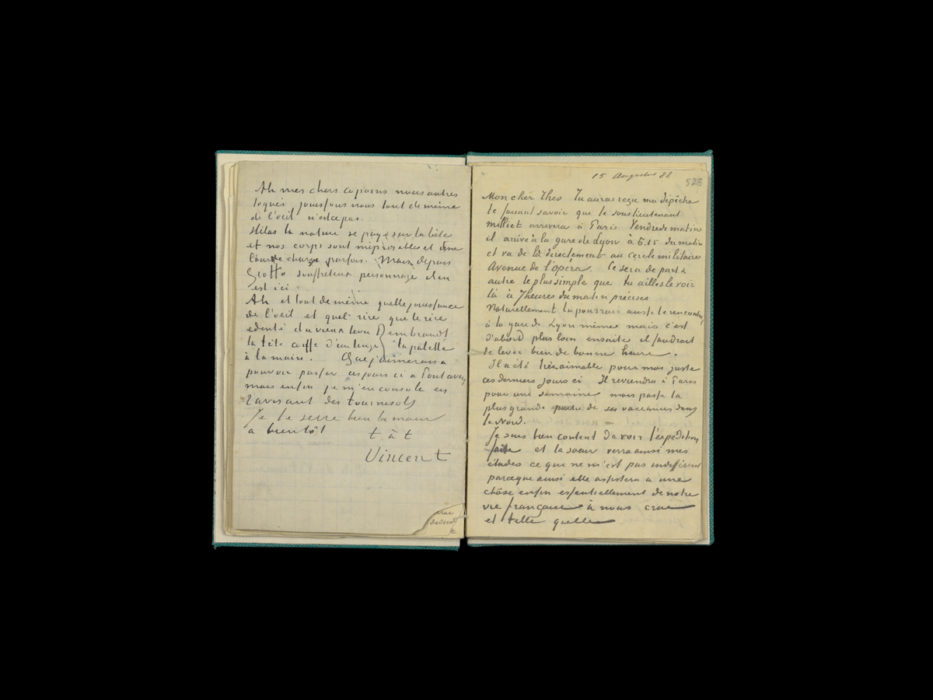 Ah mes chers copains nous autres
toqués jouissons nous tout de même
de l'oeil n'est ce pas.
Hélas la nature se paye sur la bête
et nos corps sont méprisables et d'une
lourde charge parfois. Mais depuis
Giotto souffreteux personnage il en
est ici
Ah et tout de même quelle jouissance
de l'oeil et quel rire que le rire
édenté du vieux lion Rembrandt
la tête coiffé d'un linge la palette
à la main. Que j'aimerais à
pouvoir passer ces jours ci à Pontaven
mais enfin je m'en console en
ravisant des tournesols
Je te serre bien la main
a bientôt t à t
Vincent
15 Augustus 88
528
Mon cher Theo Tu auras reçu ma dépêche
te faisant savoir que le souslieutenant
Milliet arrivera à Paris Vendredi matin
il arrive à la gare de Lyon à 5.15 du matin
et va de là directement au cercle militaire
Avenue de l'opéra. Ce sera de part &
autre le plus simple que tu ailles le voir
là à 7 heures du matin précises
Naturellement tu pourrais aussi le rencontrer
à la gare de Lyon mêmes mais c'est
d'abord plus loin ensuite il faudrait
te lever bien de bonne heure.
Il a été très aimable pour moi juste
ces derniers jours ci Il reviendra à Paris
pour une semaine mais passe la
plus grande partie de ses vacances dans
le Nord.
Je suis bien content d'avoir l'expédition
faite et la soeur verra aussi mes
études ce que ne m'est pas indifférent
parceque ainsi elle assistera à une
chôse enfin essentiellement de notre
vie française à nous crue
et telle quelle